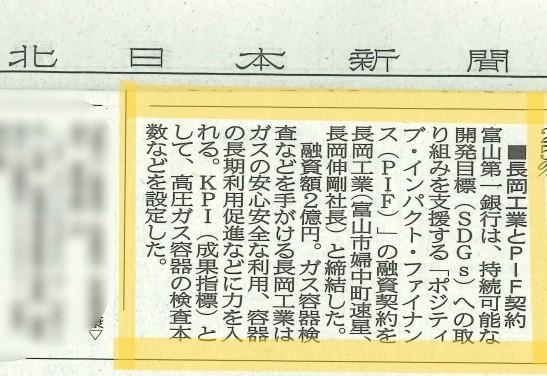 北日本新聞
■長岡工業とPIF契約
富山第一銀行は、持続可能な
開発目標（SDGs）への取
り組みを支援する「ポジティ
ブ・インパクト・ファイナン
ス（PIF）」の融資契約を
長岡工業（富山市婦中町速星、
長岡伸剛社長）と締結した。
融資額2億円。ガス容器検
査などを手がける長岡工業は
ガスの安心安全な利用、容器
の長期利用促進などに力を入
れる。KPI（成果指標）と
して、高圧ガス容器の検査本
数などを設定した。